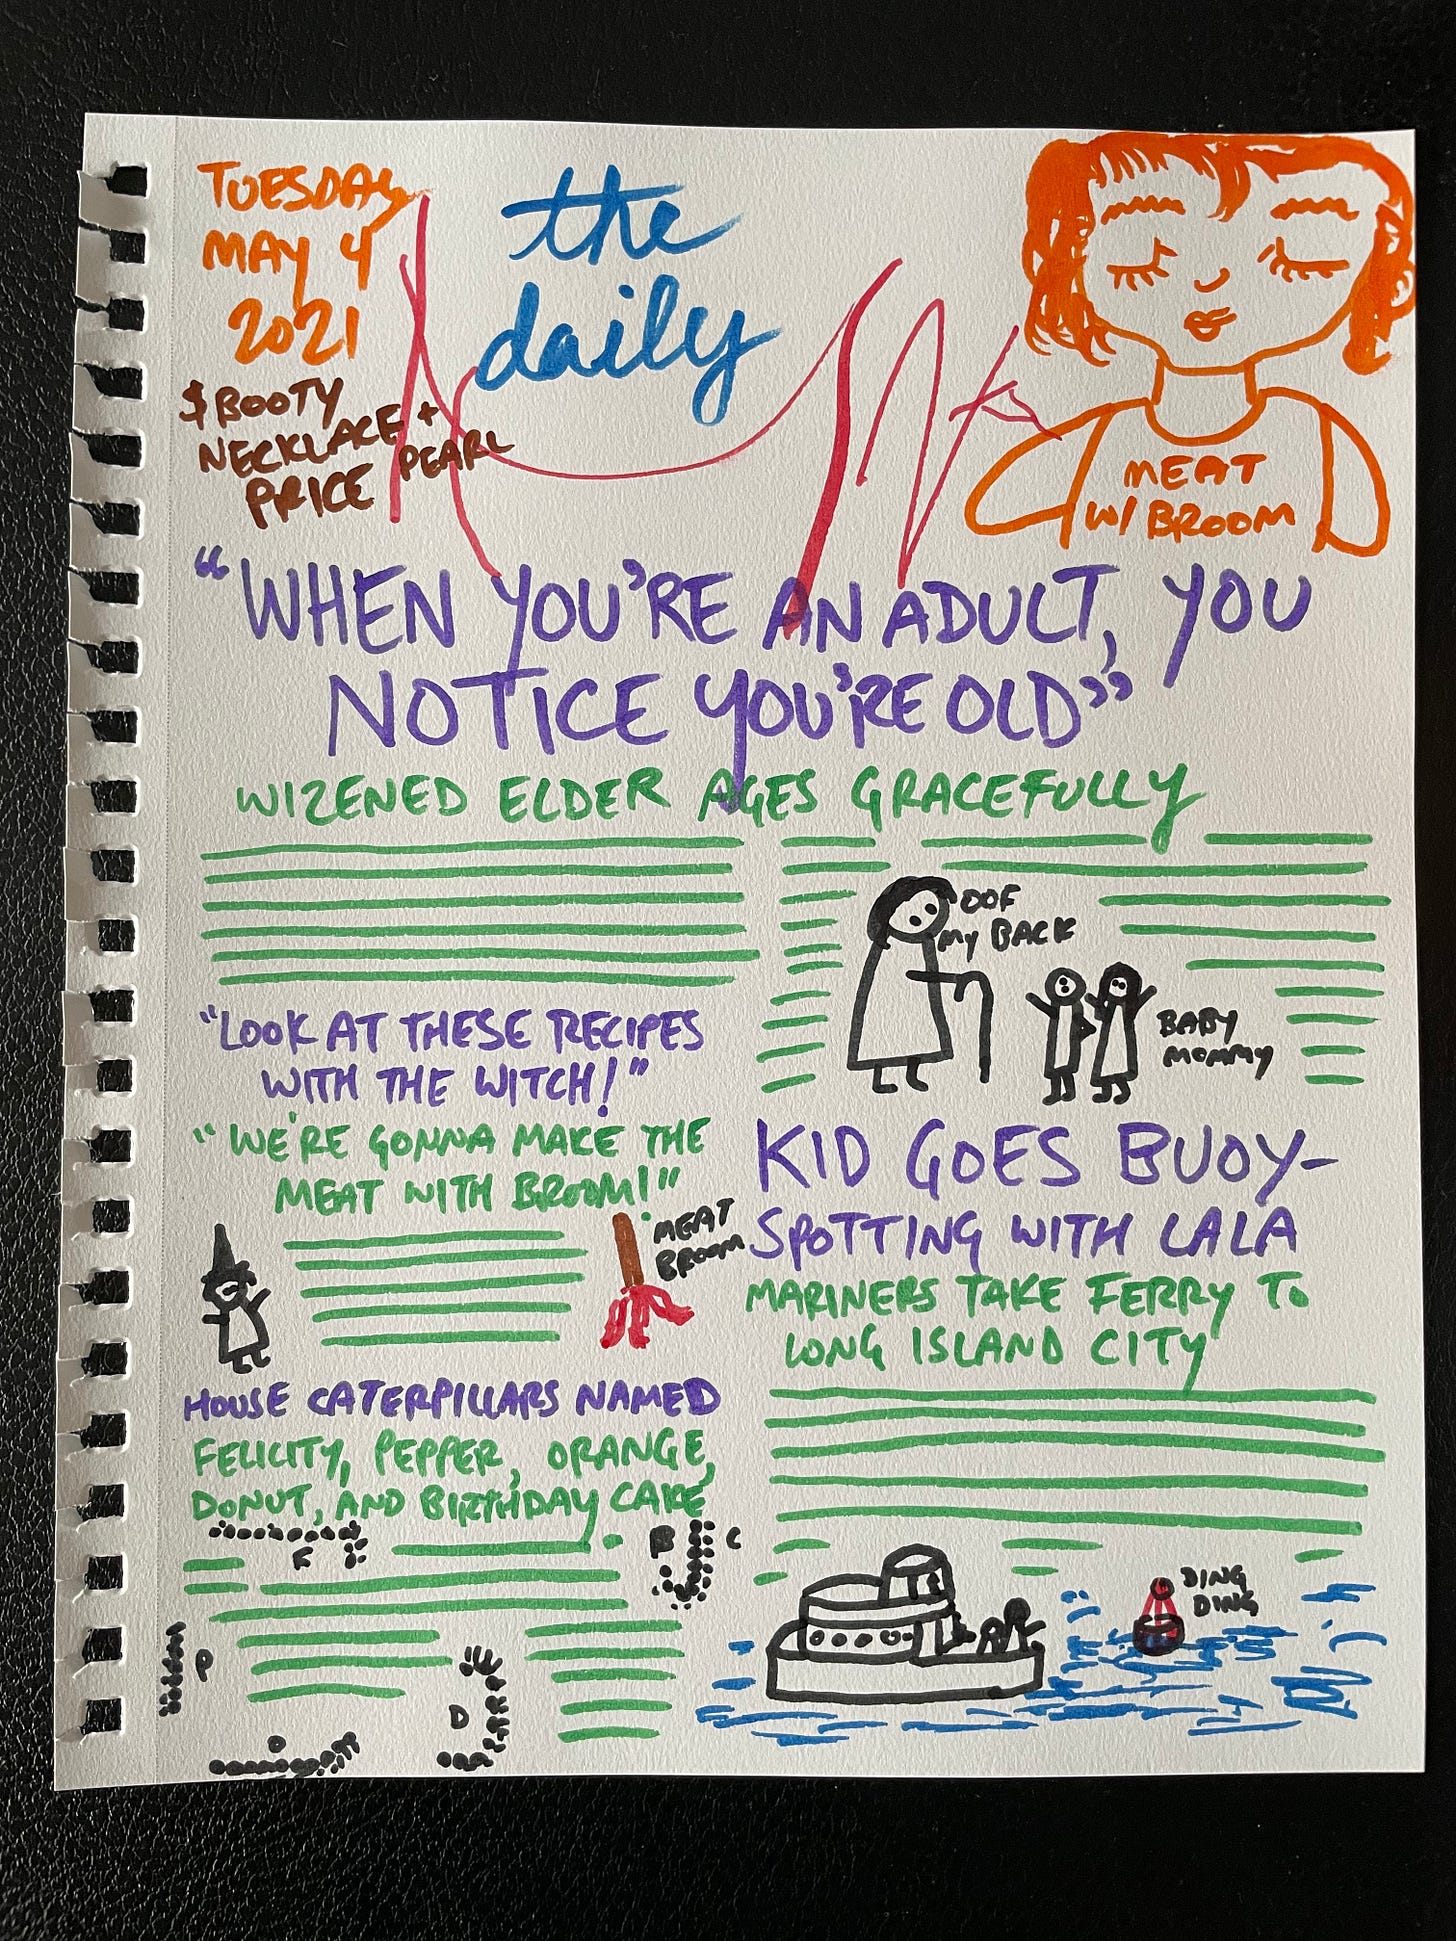 TUESDAY
MAY 4
2021
the
daily
$ BOOTY
NECKLACE +
PEARL
PRICE
MEAT
W/ BROOM
"WHEN YOU'RE AN ADULT, YOU
NOTICE YOU'RE OLD"
WIZENED ELDER AGES GRACEFULLY
OOF
MY BACK
BABY
MOMMY
"LOOK AT THESE RECIPES
WITH THE WITCH!"
"WE'RE GONNA MAKE THE
MEAT WITH BROOM!"
MEAT
BROOM
KID GOES BUOY-
SPOTTING WITH LALA
MARINERS TAKE FERRY TO
LONG ISLAND CITY
HOUSE CATERPILLARS NAMED
FELICITY, PEPPER, ORANGE,
DONUT, AND BIRTHDAY CAKE
F
B C
P
D
O
DING
DING